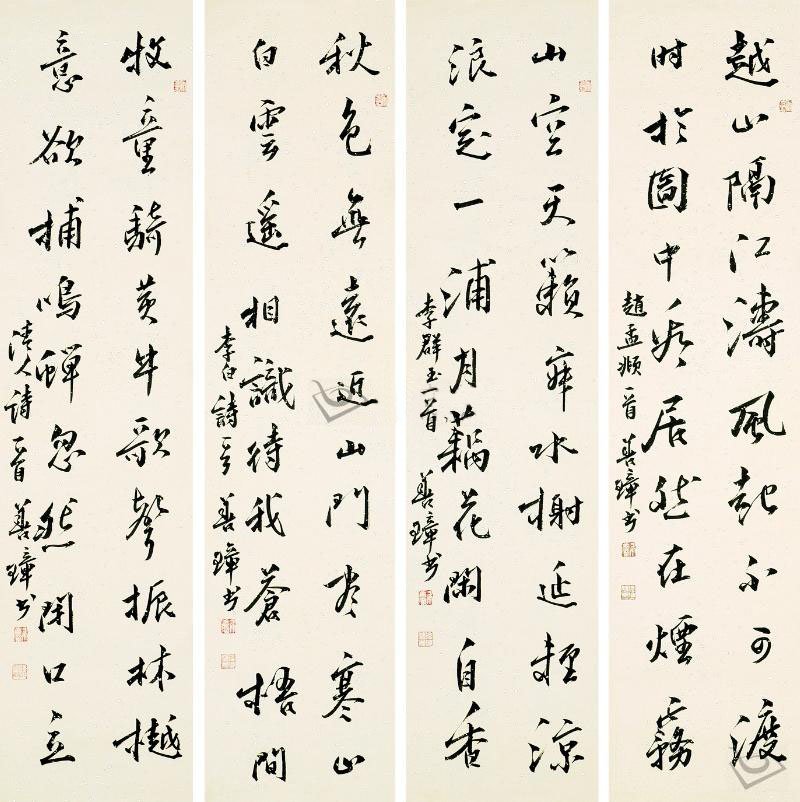 越山隔江濤風起不可渡
时於圖中看居然在煙霧
趙孟頫一首 善璋书
山空天籟寂水榭延輕涼
浪定一浦月藕花閑自香
李群玉一首 善璋书
秋色無遠近出門盡寒山
白雲遙相識待我蒼梧間
李白詩一首 善璋书
牧童騎黃牛歌聲振林樾
意欲捕鳴蟬忽然閉口立
清人詩一首 善璋书